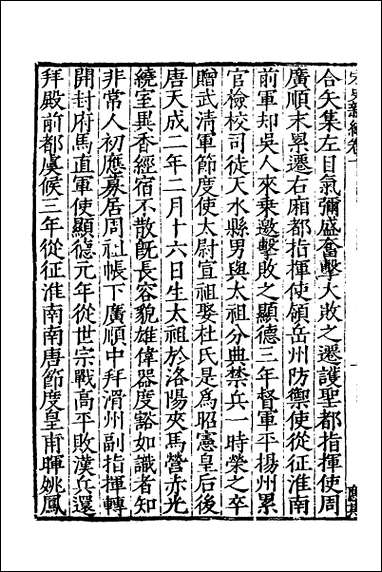 合矢集左目氣彌盛奮擊大敗之遷護聖都指揮使周
廣順末累遷右廂都指揮使領岳州防禦使從征淮南
前軍却吳人來乗邀擊敗之顯德三年督軍平揚州累
官檢校司徒天水縣男與太祖分典禁兵一時榮之卒
贈武清軍節度使太尉宣祖娶杜氏是爲昭憲皇后後
唐天成二年二月十六日生太祖於洛陽夾馬營赤光
繞室異香經宿不散旣長容貌雄偉器度豁如識者知
非常人初應募居周祖帳下廣順中拜滑州副指揮轉
開封府馬直軍使顯德元年從世宗戰高平敗漢兵還
拜殿前都虞候三年從征淮南南唐節度皇甫暉姚鳳